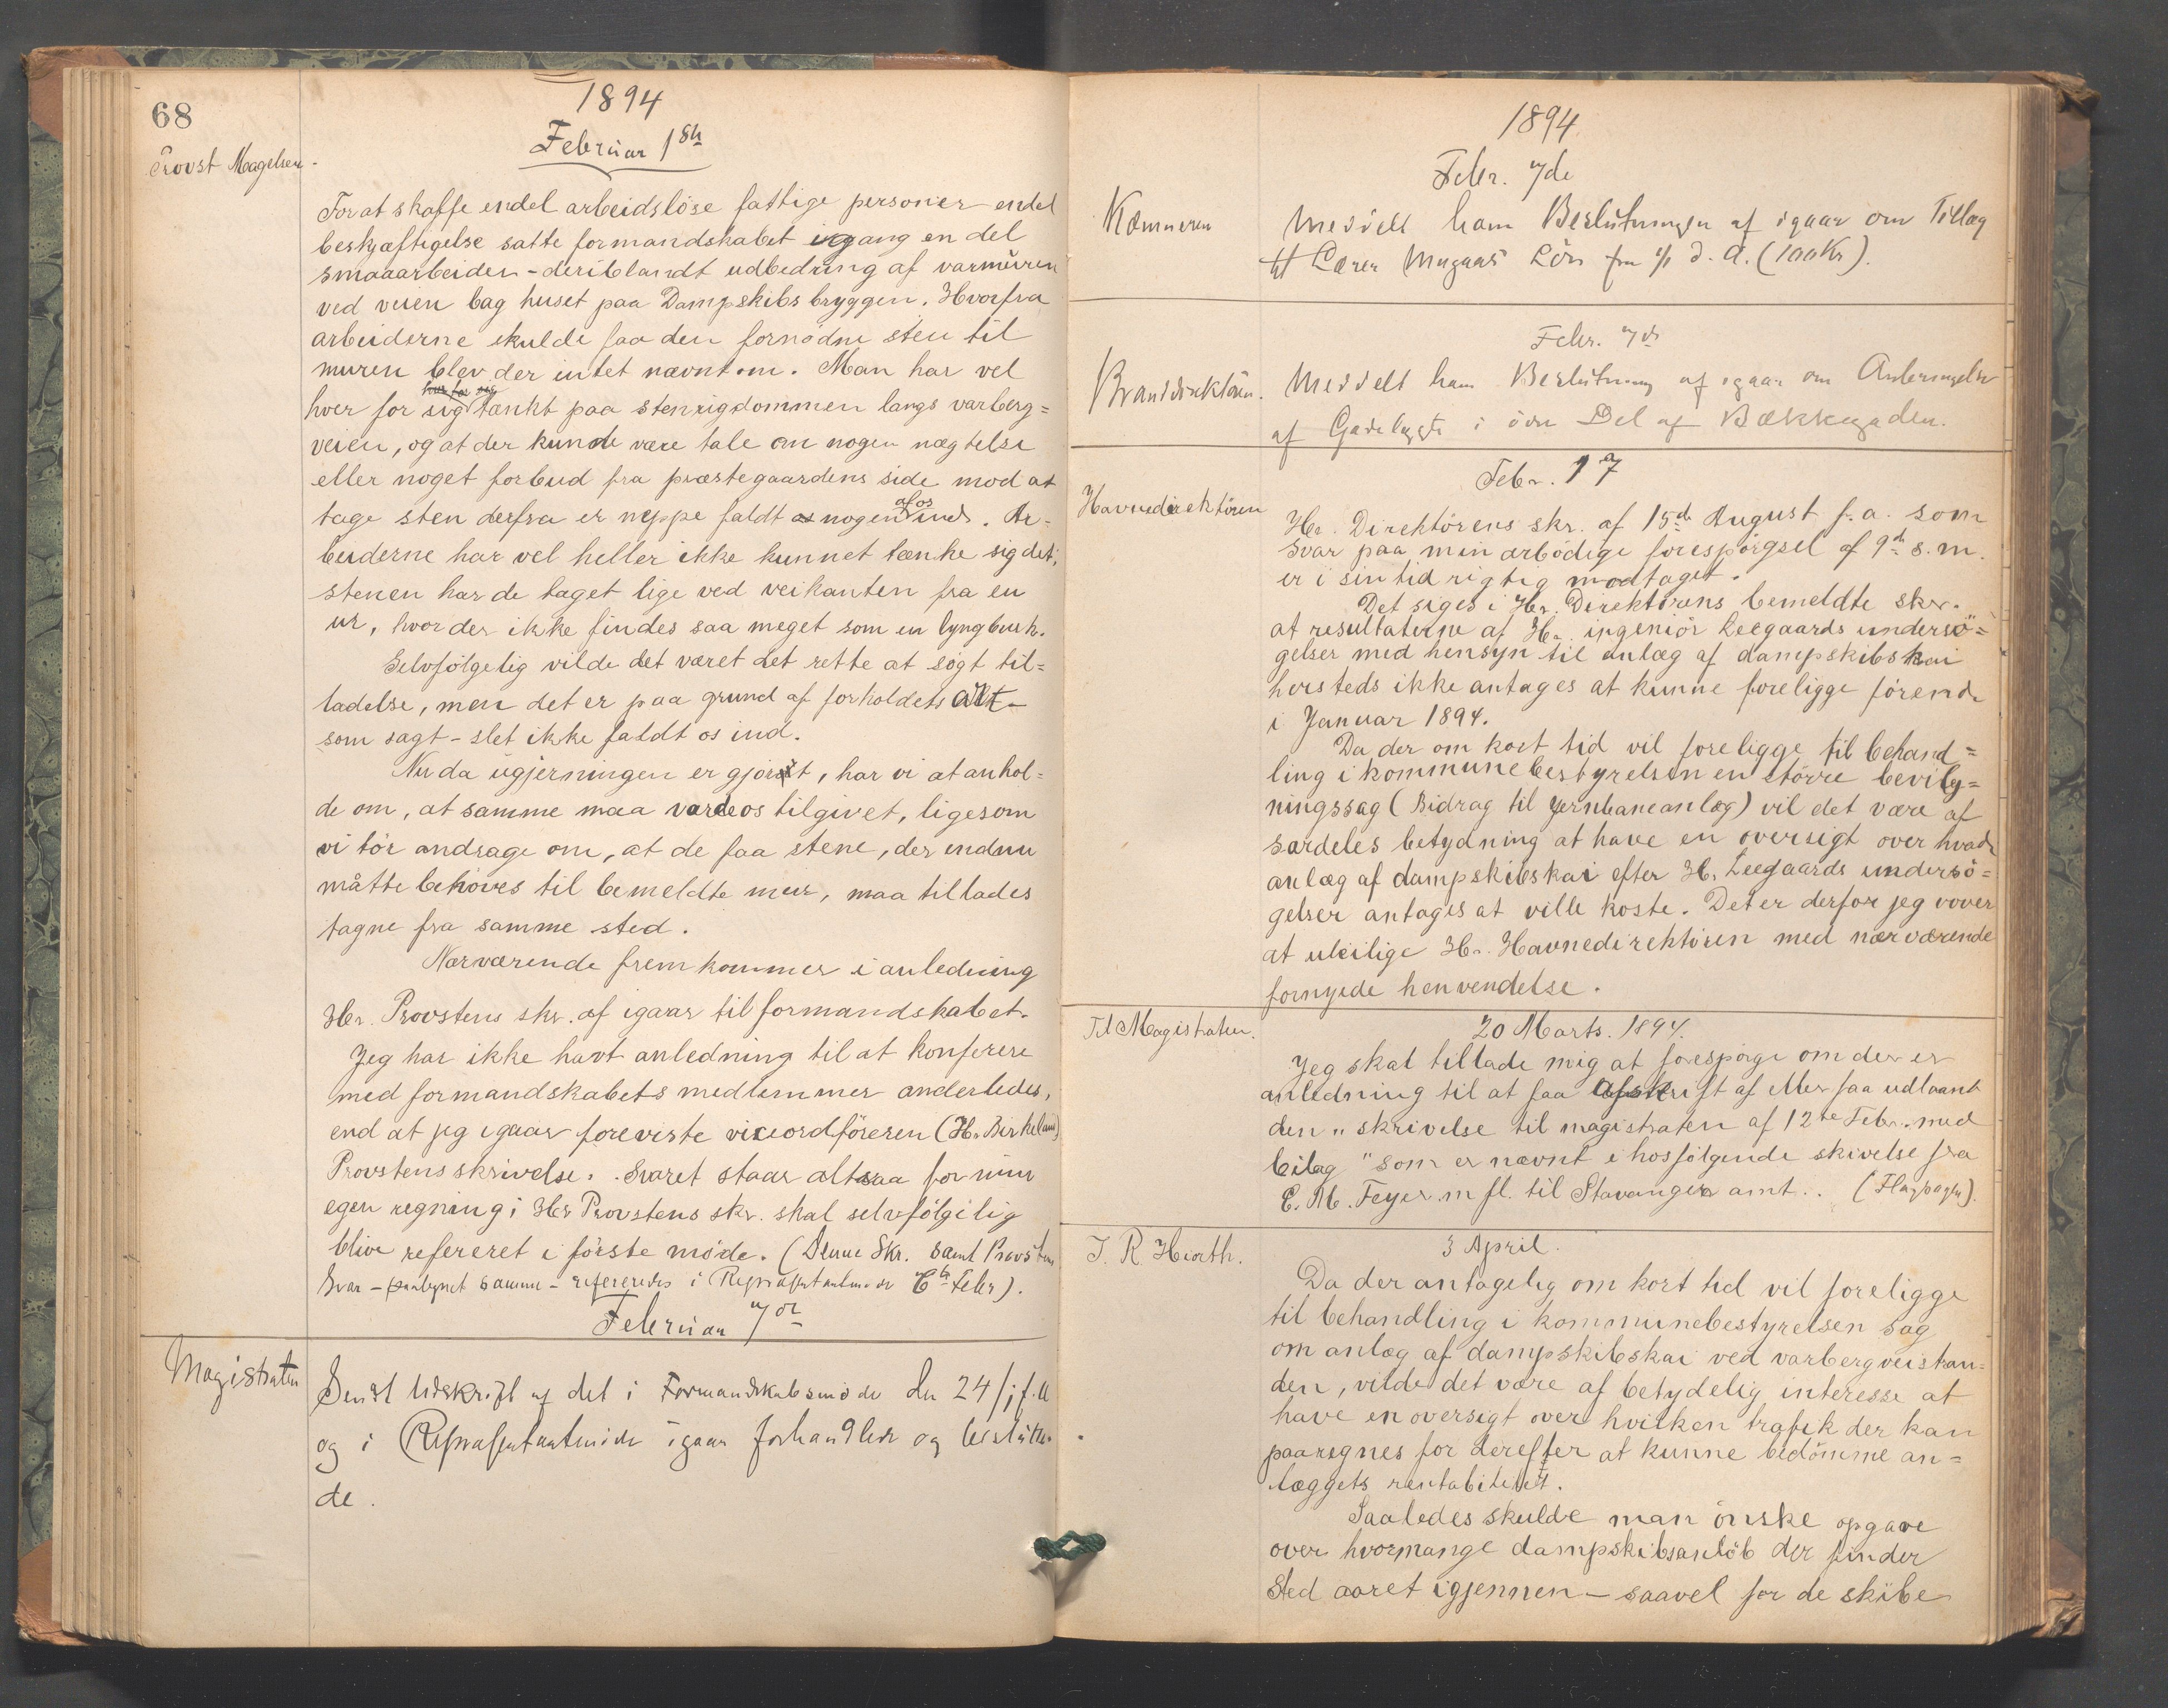 68
1894
Februar 1ste
Provst Magelsen.
For at skaffe endel arbeidslöse fattige personer endel
beskjæftigelse satte formandskabet igang en del
smaaarbeider - deriblandt udbedring af varmüren
ved veien bag huset paa Dampskibsbryggen. Hvorfra
arbeiderne skulde faa den fornödne sten til
muren blev der intet nævnt om. Man har vel
hver for sig tænkt paa stenrigdommen langs varberg=
veien, og at der kunde være tale om nogen nægtelse
eller noget forbud fra præstegaardens side mod at
tage sten derfra er neppe faldt nogen af os ind. Ar-
beiderne har vel heller ikke kunnet tænke sig det;
stenen har de taget lige ved veikanten fra en
ur, hvor der ikke findes saa meget som en lyngbusk.
Selvfölgelig vilde det været det rette at sögt til=
ladelse, men det er paa grund af forholdets art -
som sagt - slet ikke faldt os ind.
Nu da ugjerningen er gjort, har vi at anhol=
de om, at samme maa vorde os tilgivet, ligesom
vi tör andrage om, at de faa stene, der endnu
måtte behöves til bemeldte mur, maa tillades
tagne fra samme sted.
Nærværende fremkommer i anledning
Hr. Provstens skr. af igaar til formandskabet.
Jeg har ikke havt anledning til at konferere
med formandskabets medlemmer anderledes,
end at jeg igaar foreviste viceordföreren (Hr. Birkeland)
Provstens skrivelse. Svaret staar altsaa for min
egen regning; Hr Provstens skr. skal selvfölgelig
blive refereret i förste möde. (Denne Skr. samt Provstens
Svar - refereredes i Repræsentantmöde 6te Febr).
Februar 7de
Magistraten
Sendt Udskrift af det i Formandskabsmöde den 24/1 f.
og i Repræsentantmöde igaar forhandlede og beslutte-
de.
1894
Febr. 7de
Kæmneren
Meddelt ham Beslutningen af igaar om Tillæg
til Lærer Mugaas Lön fra 1/1 d. A. (100 Kr).
Febr. 7de
Branddirektören.
Meddelt ham Beslutning af igaar om Anbringelse
af Gadelygte i övre Del af Bækkegaden.
Febr. 17
Havnedirektören
Hr. Direktörens skr. af 15de August f.a. som
svar paa min ærbödige forespörgsel af 9de s.m.
er i sin tid rigtig modtaget.
Det siges i Hr. Direktörens bemeldte skr.
at resultaterne af Hr. ingeniör Leegaards undersö=
gelser med hensyn til anlæg af dampskibskai
hersteds ikke antages at kunne foreligge förend
i Januar 1894.
Da der om kort tid vil foreligge til behand=
ling i kommunebestyrelsen en större bevilg=
ningssag (Bidrag til Jernbaneanlæg) vil det være af
særdeles betydning at have en oversigt over hvad
anlæg af dampskibskai efter Hr. Leegaards undersö=
gelser antages at ville koste. Det er derfor jeg vover
at uleilige Hr. Havnedirektören med nærværende
fornyede henvendelse.
20 Marts. 1894.
Til Magistraten.
Jeg skal tillade mig at forespörge om der er
anledning til at faa afskrift af eller faa udlaant
den „skrivelse til magistraten af 12te Febr. med
bilag" som er nævnt i hosfölgende skivelse fra
C. M. Feyer m fl. til Stavanger amt..
3 April.
T. R. Hiorth.
Da der antagelig om kort tid vil foreligge
til behandling i kommunebestyrelsen sag
om anlæg af dampskibskai ved varbergveistran-
den, vilde det være af betydelig interesse at
have en oversigt over hvilken trafik der kan
paaregnes for derefter at kunne bedömme an=
læggets rentabilitet.
Saaledes skulde man önske opgave
over hvormange dampskibsanlöb der finder
sted aaret igjennem - saavel for de skibe